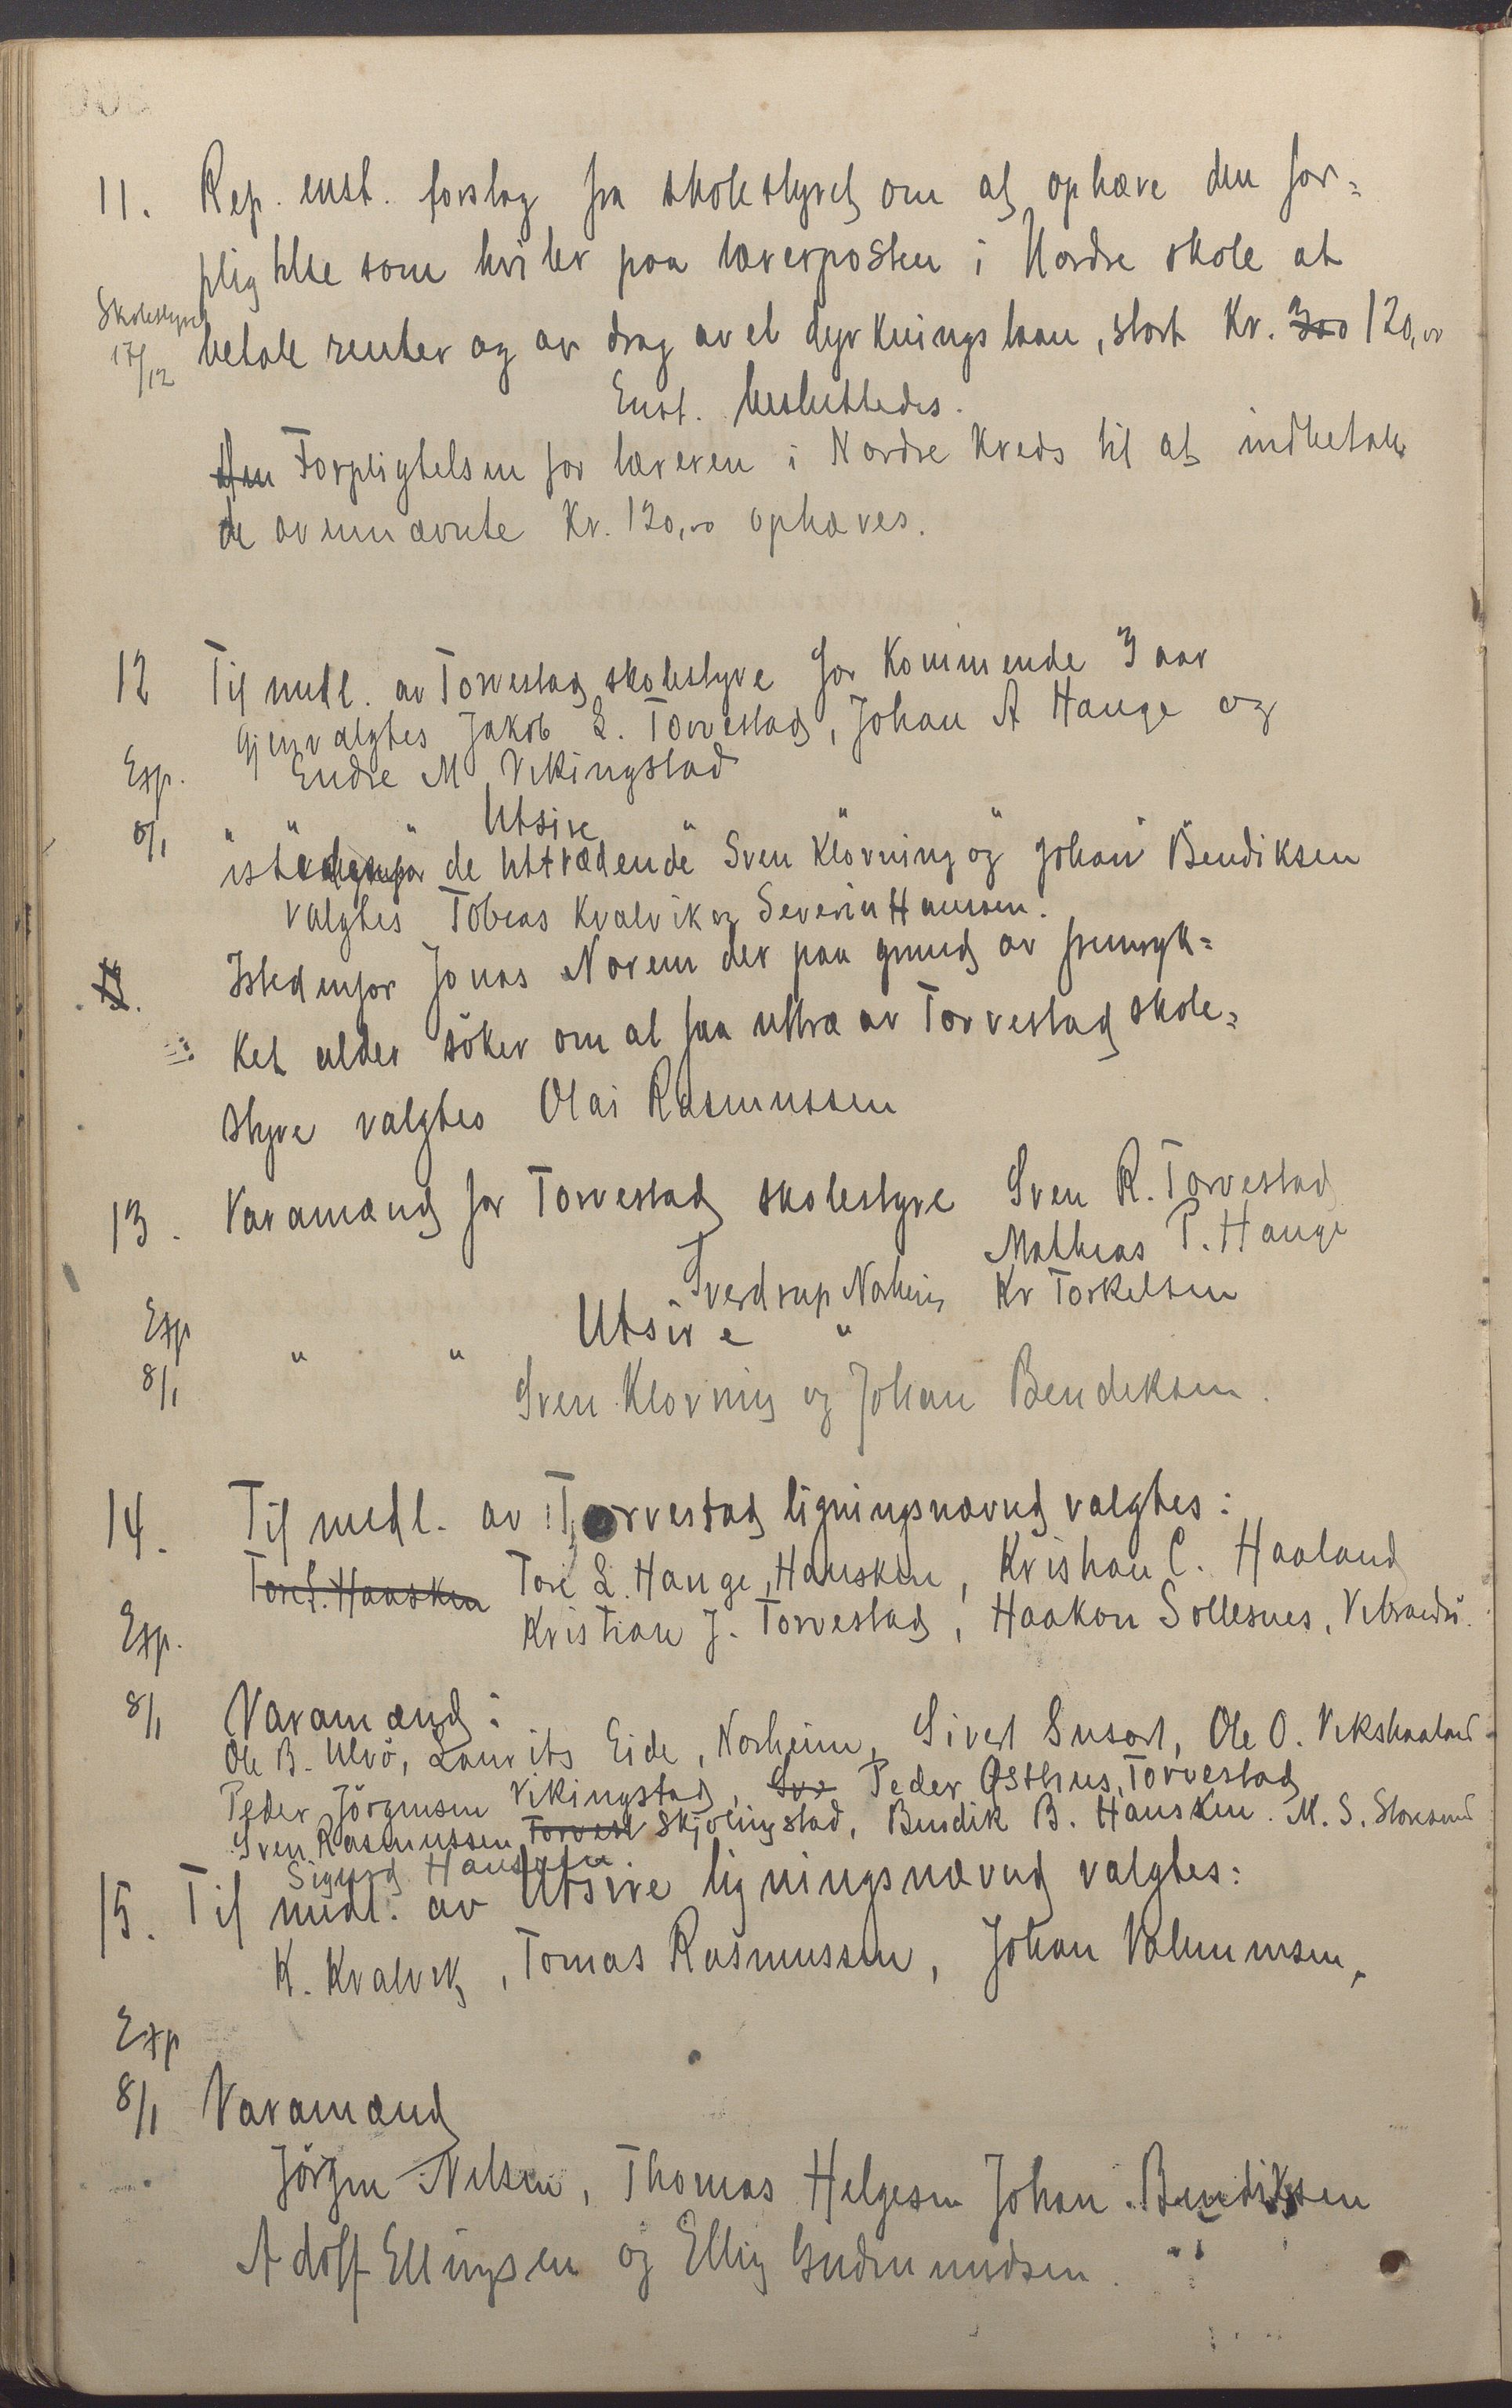 11. Rep. enst. forslag fra skolestyret om at ophæve den for-
pligtelse som hviler paa lærerposten i Nordre skole at
Skolestyret
17/12
betale renter og avdrag av et dyrkningslaan, stort Kr. 300 120,00
Enst. besluttedes.
Den Forpligtelsen for læreren i Nordre Kreds til at indbetale
de ovennævnte Kr. 120,00 ophæves.
12 Til medl. av Torvestad skolestyre for Kommende 3 aar
gjenvalgtes Jakob L. Torvestad, Johan A Hauge og
Exp. Endre M Vikingstad
8/1 " " " Utsire " " "
istedenfor de uttrædende Sven Klovning og Johan Bendiksen
valgtes Tobias Kvalvik og Severin Hansen.
Istedenfor Jonas Norem der paa grund av fremryk-
ket alder söker om at faa uttræ av Torvestad skole-
styre valgtes Olai Rasmussen
13. Varamænd for Torvestad skolestyre Sven R. Torvestad
Mathias P. Hauge
Sverdrup Norheim Kr Torkelsen
Exp " " Utsire "
8/1 Sven Klovning og Johan Bendiksen.
14. Til medl. av Torvestad ligningsnævnd valgtes:
Tore S. Haasken Tore L. Hauge, Hausken, Kristian C. Haaland
Exp. Kristian J. Torvestad, Haakon Sollesnes, Vibrandö.
8/1 Varamænd:
Ole B. Ulvö, Laurits Eide, Norheim, Sivert Susort, Ole O. Vikshaaland
Peder Jörgensen Vikingstad, Sve Peder Östhus, Torvestad
Sven Rasmussen Torvest Skjölingstad, Bendik B. Hausken. M. S. Storesund
Sigurd Hausken.
15. Til medl. av Utsire ligningsnævnd valgtes:
K. Kvalvik, Tomas Rasmussen, Johan Valnumsen,
Exp
8/1 Varamænd
Jörgen Nilsen, Thomas Helgesen Johan Bendiksen
Adolf Ellingsen og Elling Gudmundsen.